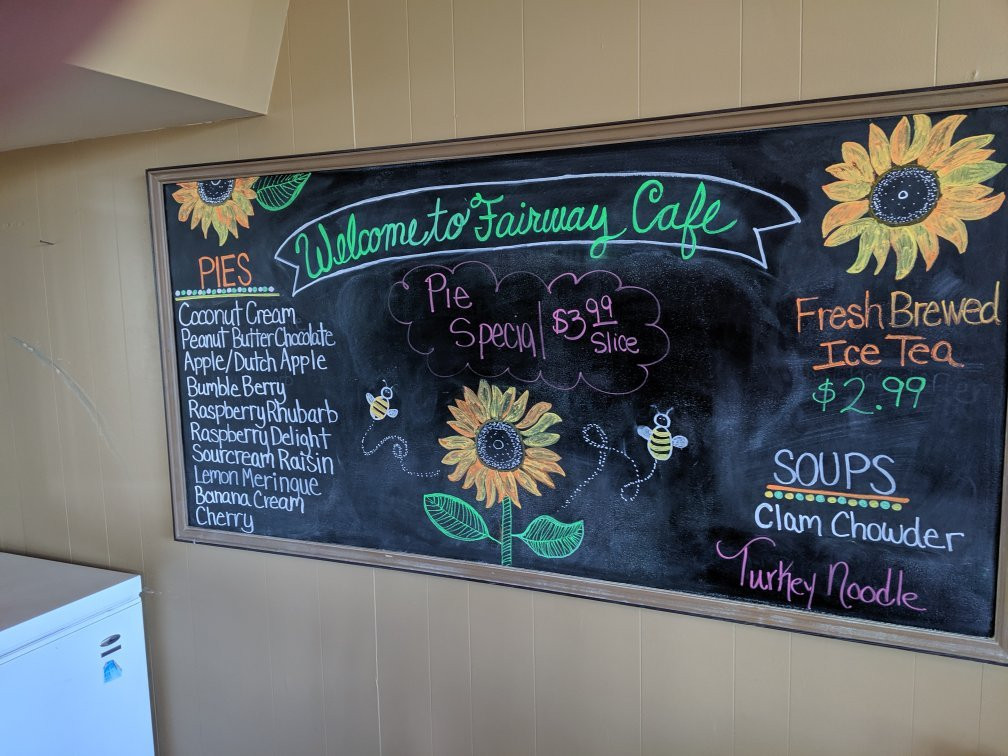 Welcome to Fairway Cafe
PIES
Coconut Cream
Peanut Butter Chocolate
Apple/Dutch Apple
Bumble Berry
Raspberry Rhubarb
Raspberry Delight
Sourcream Raisin
Lemon Meringue
Banana Cream
Cherry
Pie
Special
$3.99
Slice
Fresh Brewed
Ice Tea
$2.99
SOUPS
Clam Chowder
Turkey Noodle